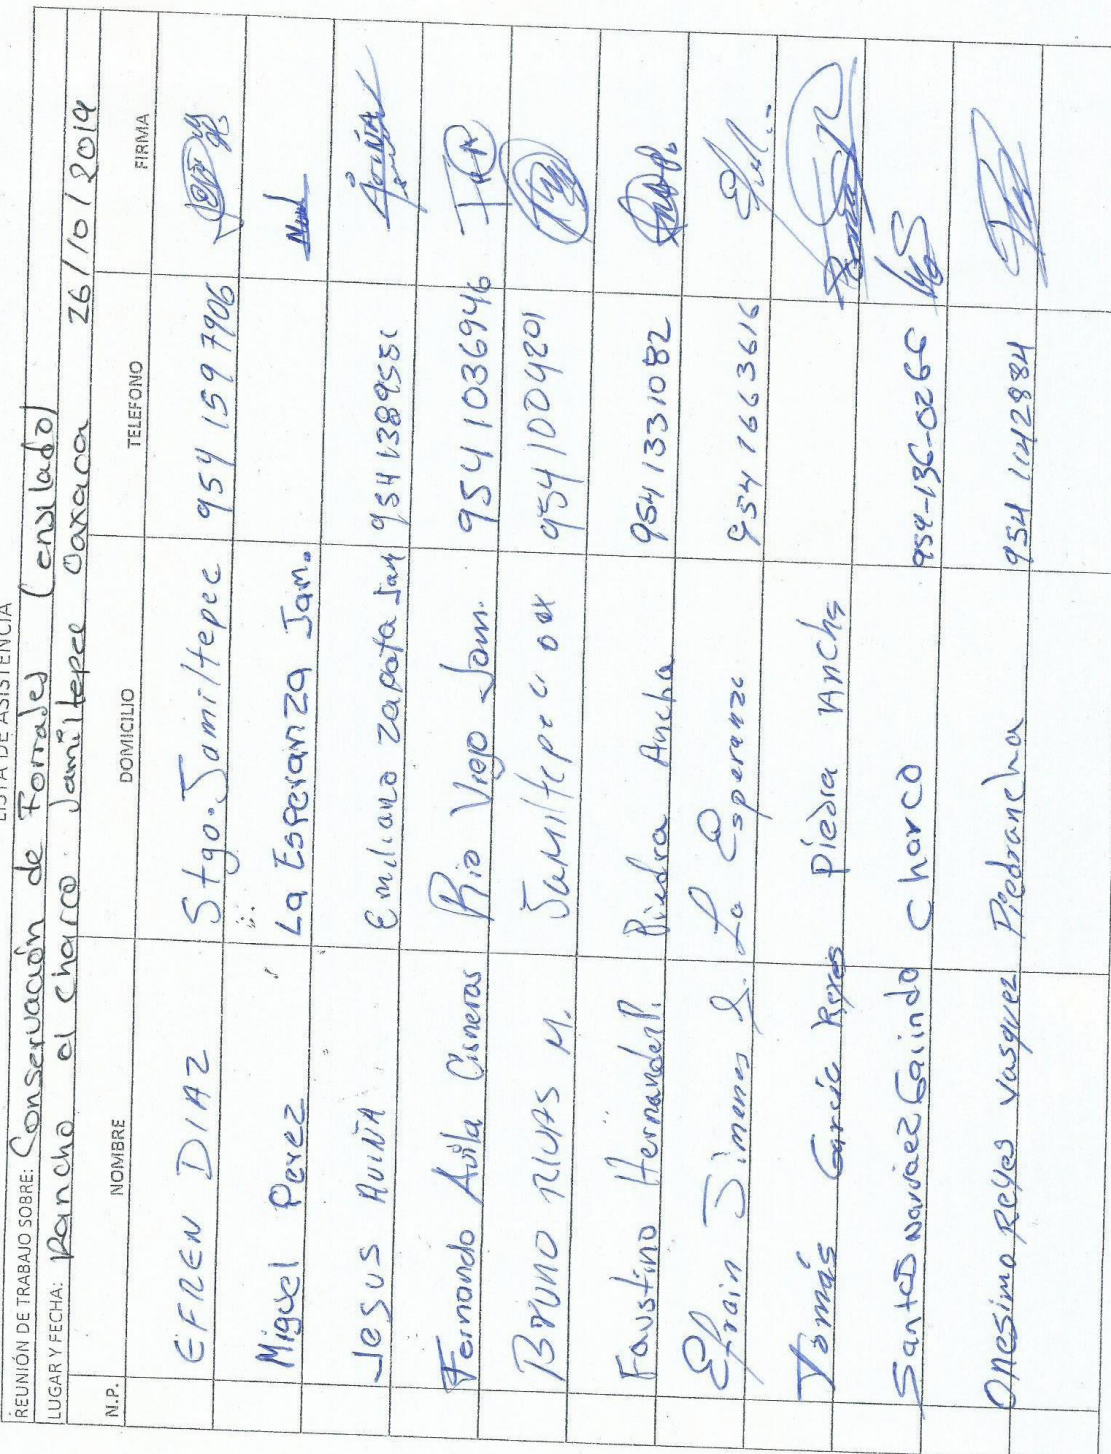 LISTA DE ASISTENCIA
REUNIÓN DE TRABAJO SOBRE: Conservación de Forrajes (ensilado)
LUGAR Y FECHA: Rancho el charco Jamiltepec Oaxaca 26/10/2019
N.P. NOMBRE DOMICILIO TELEFONO FIRMA
EFREN DIAZ Stgo. Jamiltepec 954 159 7906
Miguel Perez La Esperanza Jam.
Jesus AUIÑA Emiliano Zapata Jam
Fernando Avila Cisneros Rio Viejo Jam. 954 1036946
BRUNO RIVAS M. Jamiltepec oax 954 1004201
Faustino Hernandez P. Piedra Ancha 954 1331082
Efrain Jimenes La Esperanza 954 7663616
Tomás García Reyes Piedra Ancha
Santos Narváez Gaiindo Charco
Onesimo Reyes Vasquez Piedrancha 954 1142884